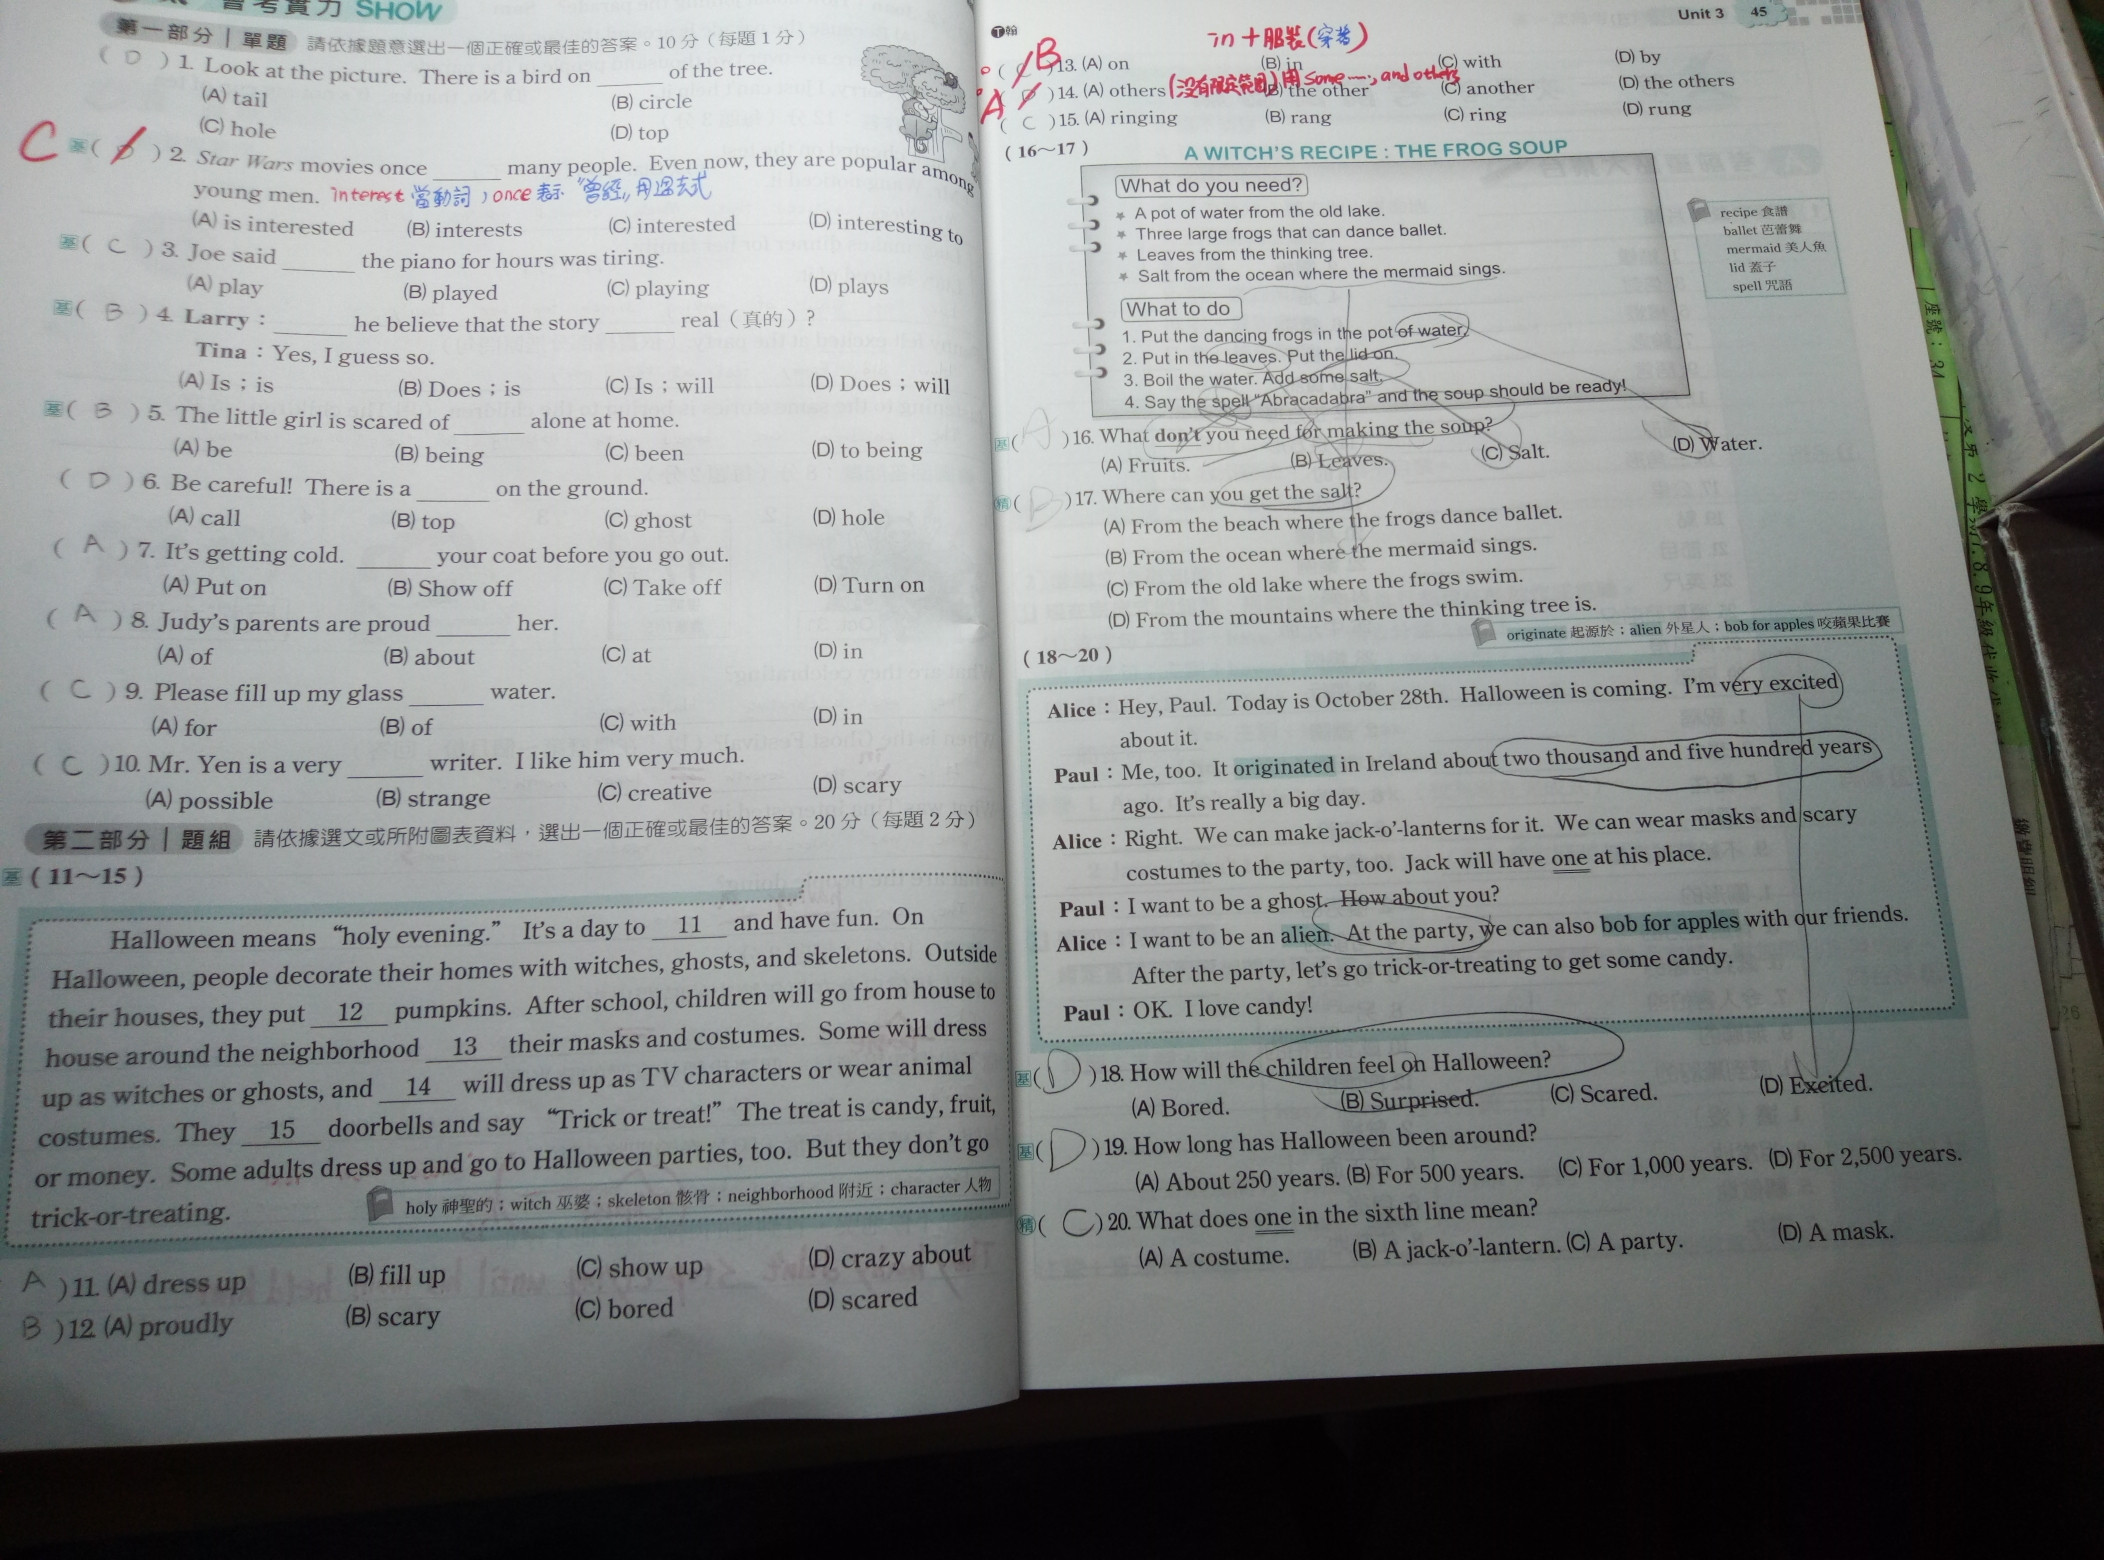 會考實力 SHOW
第一部分｜單題 請依據題意選出一個正確或最佳的答案。10 分（每題 1 分）
( D ) 1. Look at the picture. There is a bird on ______ of the tree.
(A) tail (B) circle
(C) hole (D) top
C 基 ( ) 2. Star Wars movies once ______ many people. Even now, they are popular among
young men. interest 當動詞，once 表示 "曾經"，用過去式
(A) is interested (B) interests (C) interested (D) interesting to
基 ( C ) 3. Joe said ______ the piano for hours was tiring.
(A) play (B) played (C) playing (D) plays
基 ( B ) 4. Larry：______ he believe that the story ______ real（真的）?
Tina：Yes, I guess so.
(A) Is；is (B) Does；is (C) Is；will (D) Does；will
基 ( B ) 5. The little girl is scared of ______ alone at home.
(A) be (B) being (C) been (D) to being
( D ) 6. Be careful! There is a ______ on the ground.
(A) call (B) top (C) ghost (D) hole
( A ) 7. It's getting cold. ______ your coat before you go out.
(A) Put on (B) Show off (C) Take off (D) Turn on
( A ) 8. Judy's parents are proud ______ her.
(A) of (B) about (C) at (D) in
( C ) 9. Please fill up my glass ______ water.
(A) for (B) of (C) with (D) in
( C ) 10. Mr. Yen is a very ______ writer. I like him very much.
(A) possible (B) strange (C) creative (D) scary
第二部分｜題組 請依據選文或所附圖表資料，選出一個正確或最佳的答案。20 分（每題 2 分）
基 ( 11～15 )
Halloween means “holy evening.” It's a day to 11 and have fun. On
Halloween, people decorate their homes with witches, ghosts, and skeletons. Outside
their houses, they put 12 pumpkins. After school, children will go from house to
house around the neighborhood 13 their masks and costumes. Some will dress
up as witches or ghosts, and 14 will dress up as TV characters or wear animal
costumes. They 15 doorbells and say “Trick or treat!” The treat is candy, fruit,
or money. Some adults dress up and go to Halloween parties, too. But they don't go
trick-or-treating.
holy 神聖的；witch 巫婆；skeleton 骸骨；neighborhood 附近；character 人物
A ) 11. (A) dress up (B) fill up (C) show up (D) crazy about
B ) 12. (A) proudly (B) scary (C) bored (D) scared
Unit 3 45
翰
in + 服裝(穿著)
B ( ) 13. (A) on (B) in (C) with (D) by
(沒有限定範圍) 用 some…, and others
A ( ) 14. (A) others (B) the other (C) another (D) the others
( C ) 15. (A) ringing (B) rang (C) ring (D) rung
( 16～17 )
A WITCH'S RECIPE : THE FROG SOUP
What do you need?
* A pot of water from the old lake.
* Three large frogs that can dance ballet.
* Leaves from the thinking tree.
* Salt from the ocean where the mermaid sings.
What to do
1. Put the dancing frogs in the pot of water.
2. Put in the leaves. Put the lid on.
3. Boil the water. Add some salt.
4. Say the spell “Abracadabra” and the soup should be ready!
recipe 食譜
ballet 芭蕾舞
mermaid 美人魚
lid 蓋子
spell 咒語
基 ( A ) 16. What don't you need for making the soup?
(A) Fruits. (B) Leaves. (C) Salt. (D) Water.
精 ( B ) 17. Where can you get the salt?
(A) From the beach where the frogs dance ballet.
(B) From the ocean where the mermaid sings.
(C) From the old lake where the frogs swim.
(D) From the mountains where the thinking tree is.
originate 起源於；alien 外星人；bob for apples 咬蘋果比賽
( 18～20 )
Alice：Hey, Paul. Today is October 28th. Halloween is coming. I'm very excited
about it.
Paul：Me, too. It originated in Ireland about two thousand and five hundred years
ago. It's really a big day.
Alice：Right. We can make jack-o'-lanterns for it. We can wear masks and scary
costumes to the party, too. Jack will have one at his place.
Paul：I want to be a ghost. How about you?
Alice：I want to be an alien. At the party, we can also bob for apples with our friends.
After the party, let's go trick-or-treating to get some candy.
Paul：OK. I love candy!
基 ( D ) 18. How will the children feel on Halloween?
(A) Bored. (B) Surprised. (C) Scared. (D) Excited.
基 ( D ) 19. How long has Halloween been around?
(A) About 250 years. (B) For 500 years. (C) For 1,000 years. (D) For 2,500 years.
精 ( C ) 20. What does one in the sixth line mean?
(A) A costume. (B) A jack-o'-lantern. (C) A party. (D) A mask.
座號：34